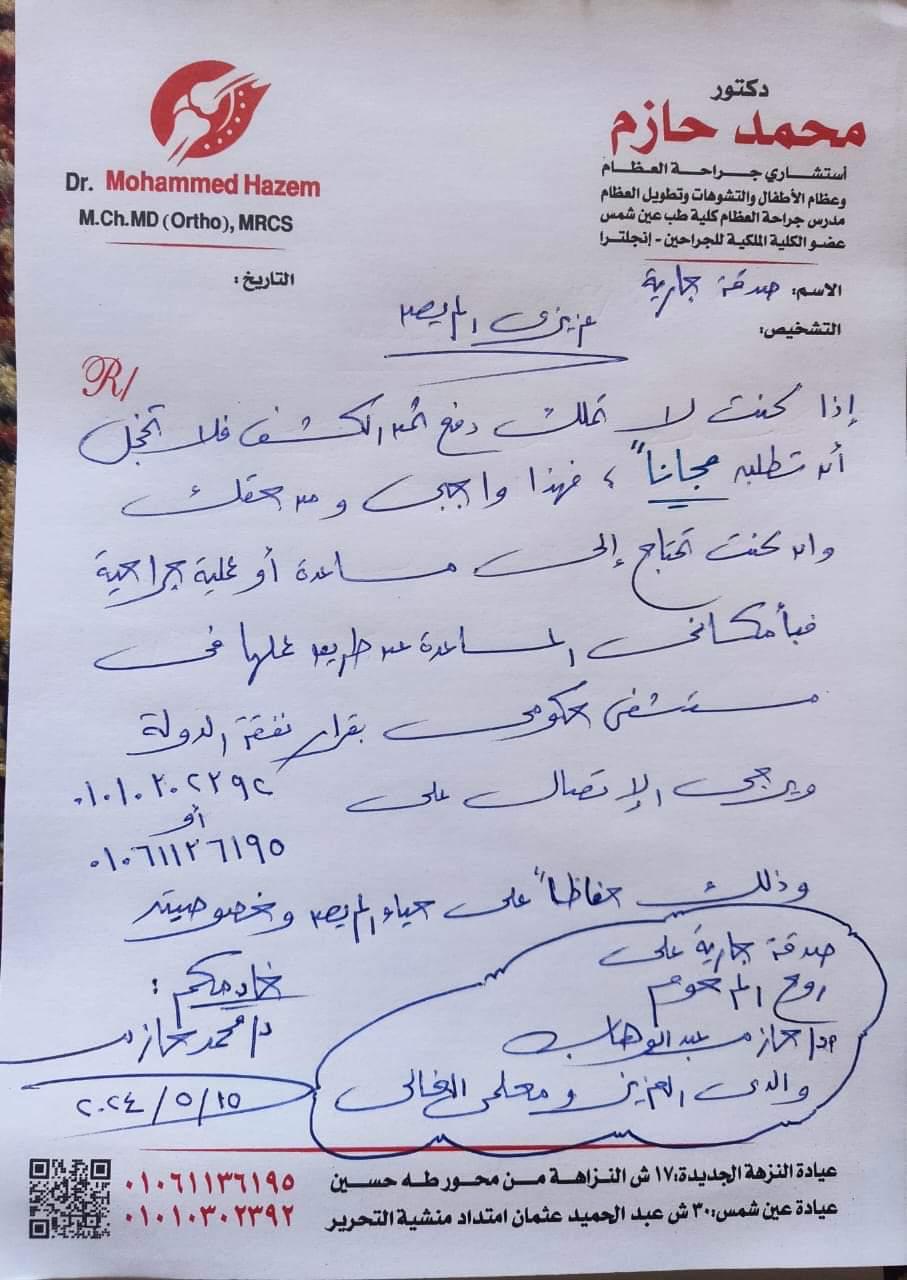 دكتور
محمد حازم
أستشاري جراحة العظام
وعظام الأطفال والتشوهات وتطويل العظام
مدرس جراحة العظام كلية طب عين شمس
عضو الكلية الملكية للجراحين - إنجلترا
Dr. Mohammed Hazem
M.Ch.MD (Ortho), MRCS
الاسم: صدقة جارية
التاريخ:
التشخيص:
عزيزى المريض
R/
إذا كنت لا تملك دفع ثمن الكشف فلا تخجل
أن تطلبه مجاناً، فهذا واجبى ومن حقك
وان كنت تحتاج إلى مساعدة أو عملية جراحية
فبأمكانى المساعدة عن طريق عملها فى
مستشفى حكومى بقرار نفقة الدولة
ويرجى الإتصال على ٠١٠١٠٣٠٢٣٩٢
أو
٠١٠٦١١٣٦١٩٥
وذلك حفاظاً على حياء المريض وخصوصيته
صدقة جارية على
روح المرحوم
حازم عبد الوهاب
والدى العزيز ومعلمى الغالى
خادمكم :
د/ محمد حازم
٢٠٢٤/٥/١٥
عيادة النزهة الجديدة: ١٧ ش النزاهة من محور طه حسين
٠١٠٦١١٣٦١٩٥
عيادة عين شمس: ٣٠ ش عبد الحميد عثمان امتداد منشية التحرير
٠١٠١٠٣٠٢٣٩٢